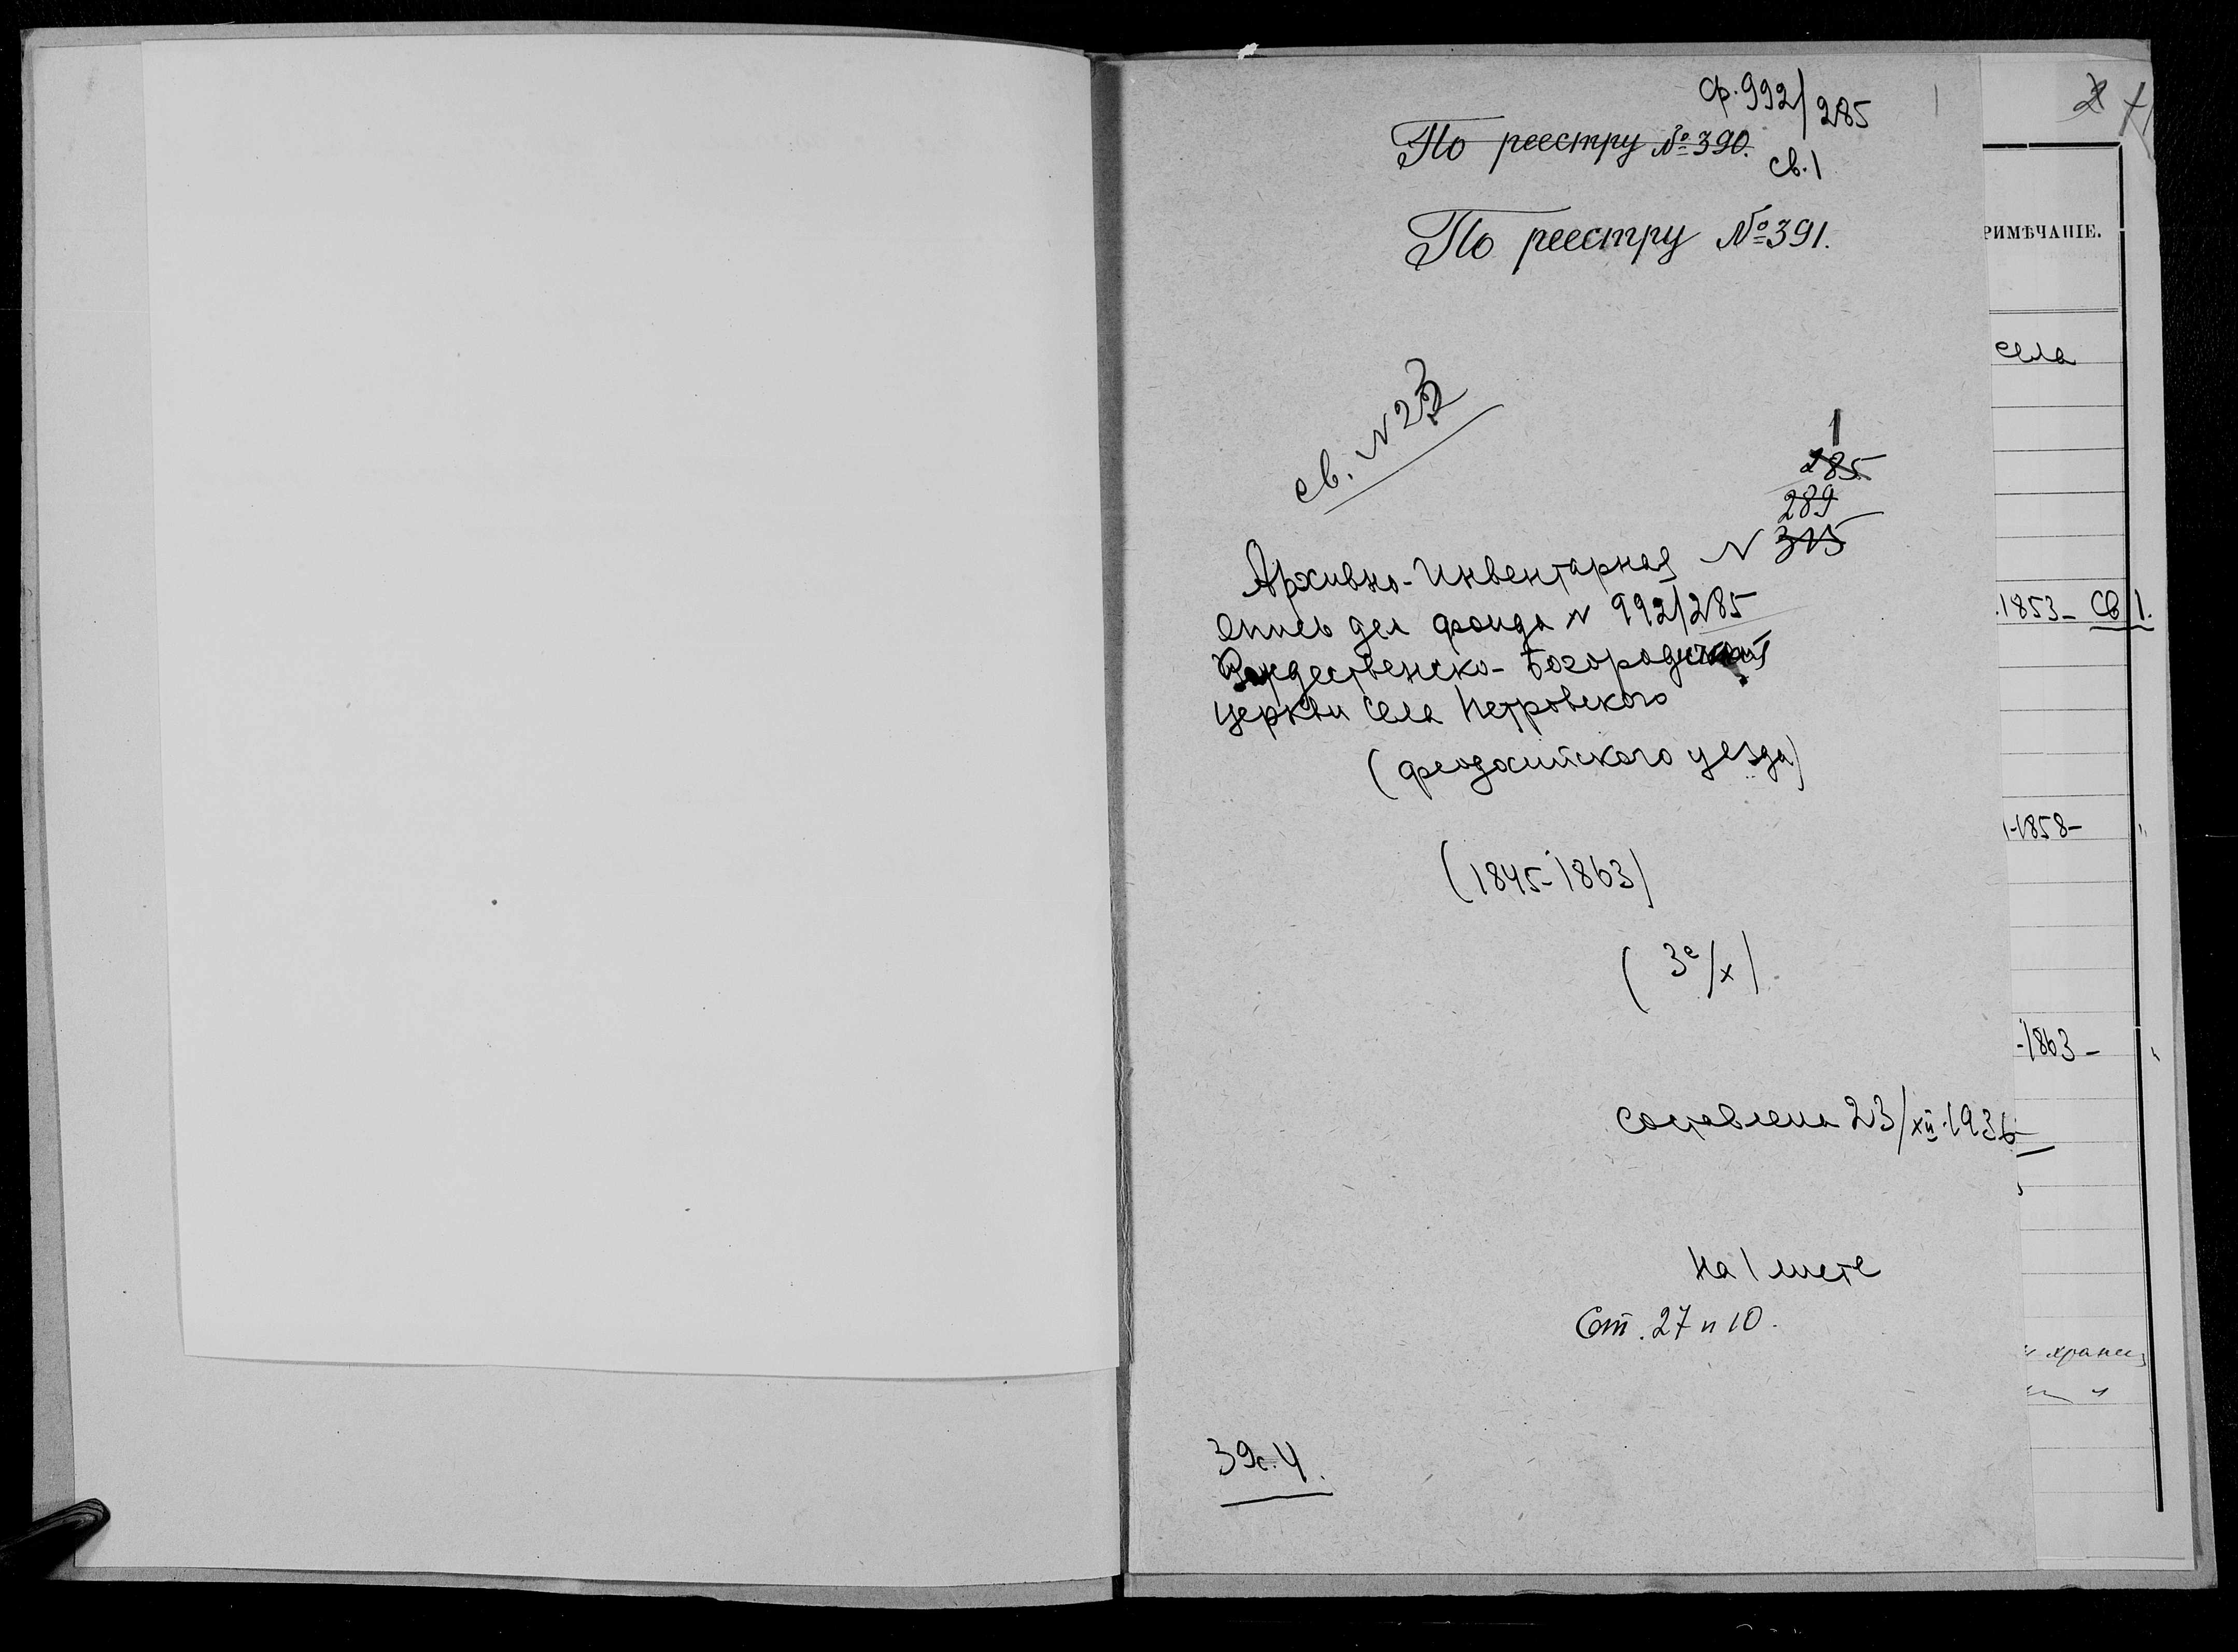 ф.992/285
1
По реестру №390.
св.1
По реестру №391.
св. N 23
1
285
289
Архивно-Инвентарная N 315
опись дел фонда N 992/285
Рождественско-Богородичной
церкви села Петровского
(феодосийского уезда)
(1845-1863)
(3е/х)
составлена 23/XII-1936
На 1 листе
Ст. 27 и 10.
РИМѢЧАНІЕ.
села
.1853- Св 1.
-1858- "
-1863- "
хранен